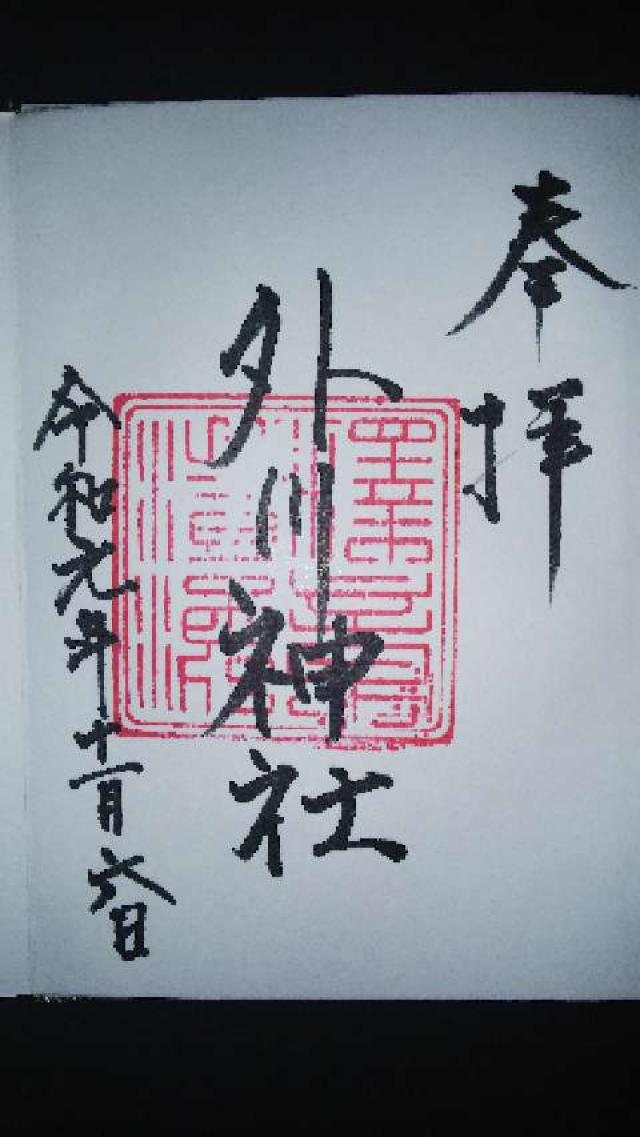 奉拝
外川神社
令和元年十一月六日